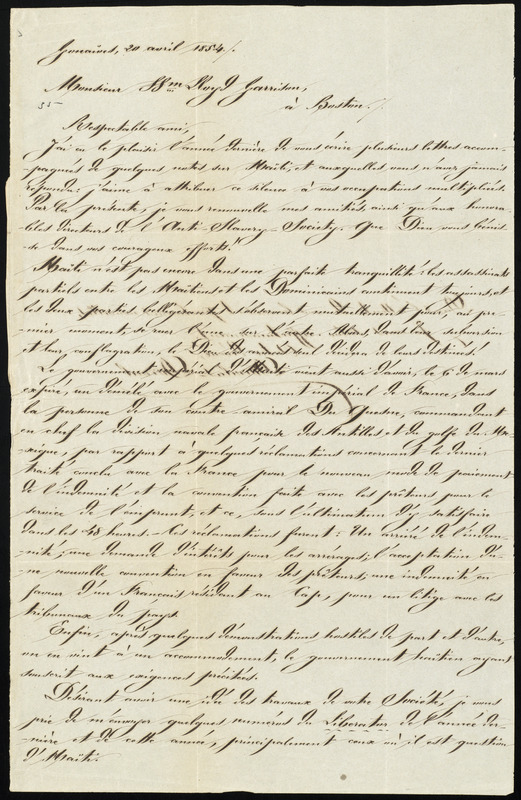 Gonaïves, 20 avril 1854/.
Monsieur Wm Loyd Garrison,
à Boston./.
55
Respectable ami,
J'ai eu le plaisir l'année dernière de vous écrire plusieurs lettres accom-
pagnées de quelques notes sur Haïti; et auxquelles vous n'avez jamais
répondu: j'aime à attribuer ce silence à vos occupations multipliées.
Par la présente, je vous renouvelle mes amitiés, ainsi qu'aux honora-
bles Directeurs de l'Anti-Slavery-Society. Que Dieu vous bénis-
se dans vos courageux efforts!
Haïti n'est pas encore dans une parfaite tranquillité: les assassinats
partiels entre les Haïtiens et les Dominicains continuent toujours, et
les deux parties belligérantes s'observent mutuellement pour, au pre-
mier moment, se ruer l'une sur l'autre. Alors, dans leur subversion
et leur conflagration, le Dieu des armées seul décidera de leurs destinées.
Le gouvernement impérial d'Haïti vient aussi d'avoir, le 6 de mars
expiré, un démêlé avec le gouvernement impérial de France, dans
la personne de son contre amiral Du Quesne, commandant
en chef la division navale française des Antilles et du golfe du Me-
xique, par rapport à quelques réclamations concernant le dernier
traité conclu avec la France pour le nouveau mode de paiement
de l'indemnité et la convention faite avec les prêteurs pour le
service de l'emprunt, et ce, sous l'ultimatum d'y satisfaire
dans les 48 heures. Ces réclamations furent: Un arriéré de l'indem-
nité; une demande d'intérêts pour les arrérages; l'acceptation d'u-
ne nouvelle convention en faveur des prêteurs; une indemnité en
faveur d'un Français résidant au Cap, pour un litige avec les
tribunaux du pays.
Enfin, après quelques démonstrations hostiles de part et d'autre,
on en vint à un accommodement, le gouvernement haïtien ayant
souscrit aux exigences précitées.
Désirant avoir une idée des travaux de votre Société, je vous
prie de m'envoyer quelques numéros du Liberator de l'année der-
nière et de cette année, principalement ceux où il est question
d'Haïti.